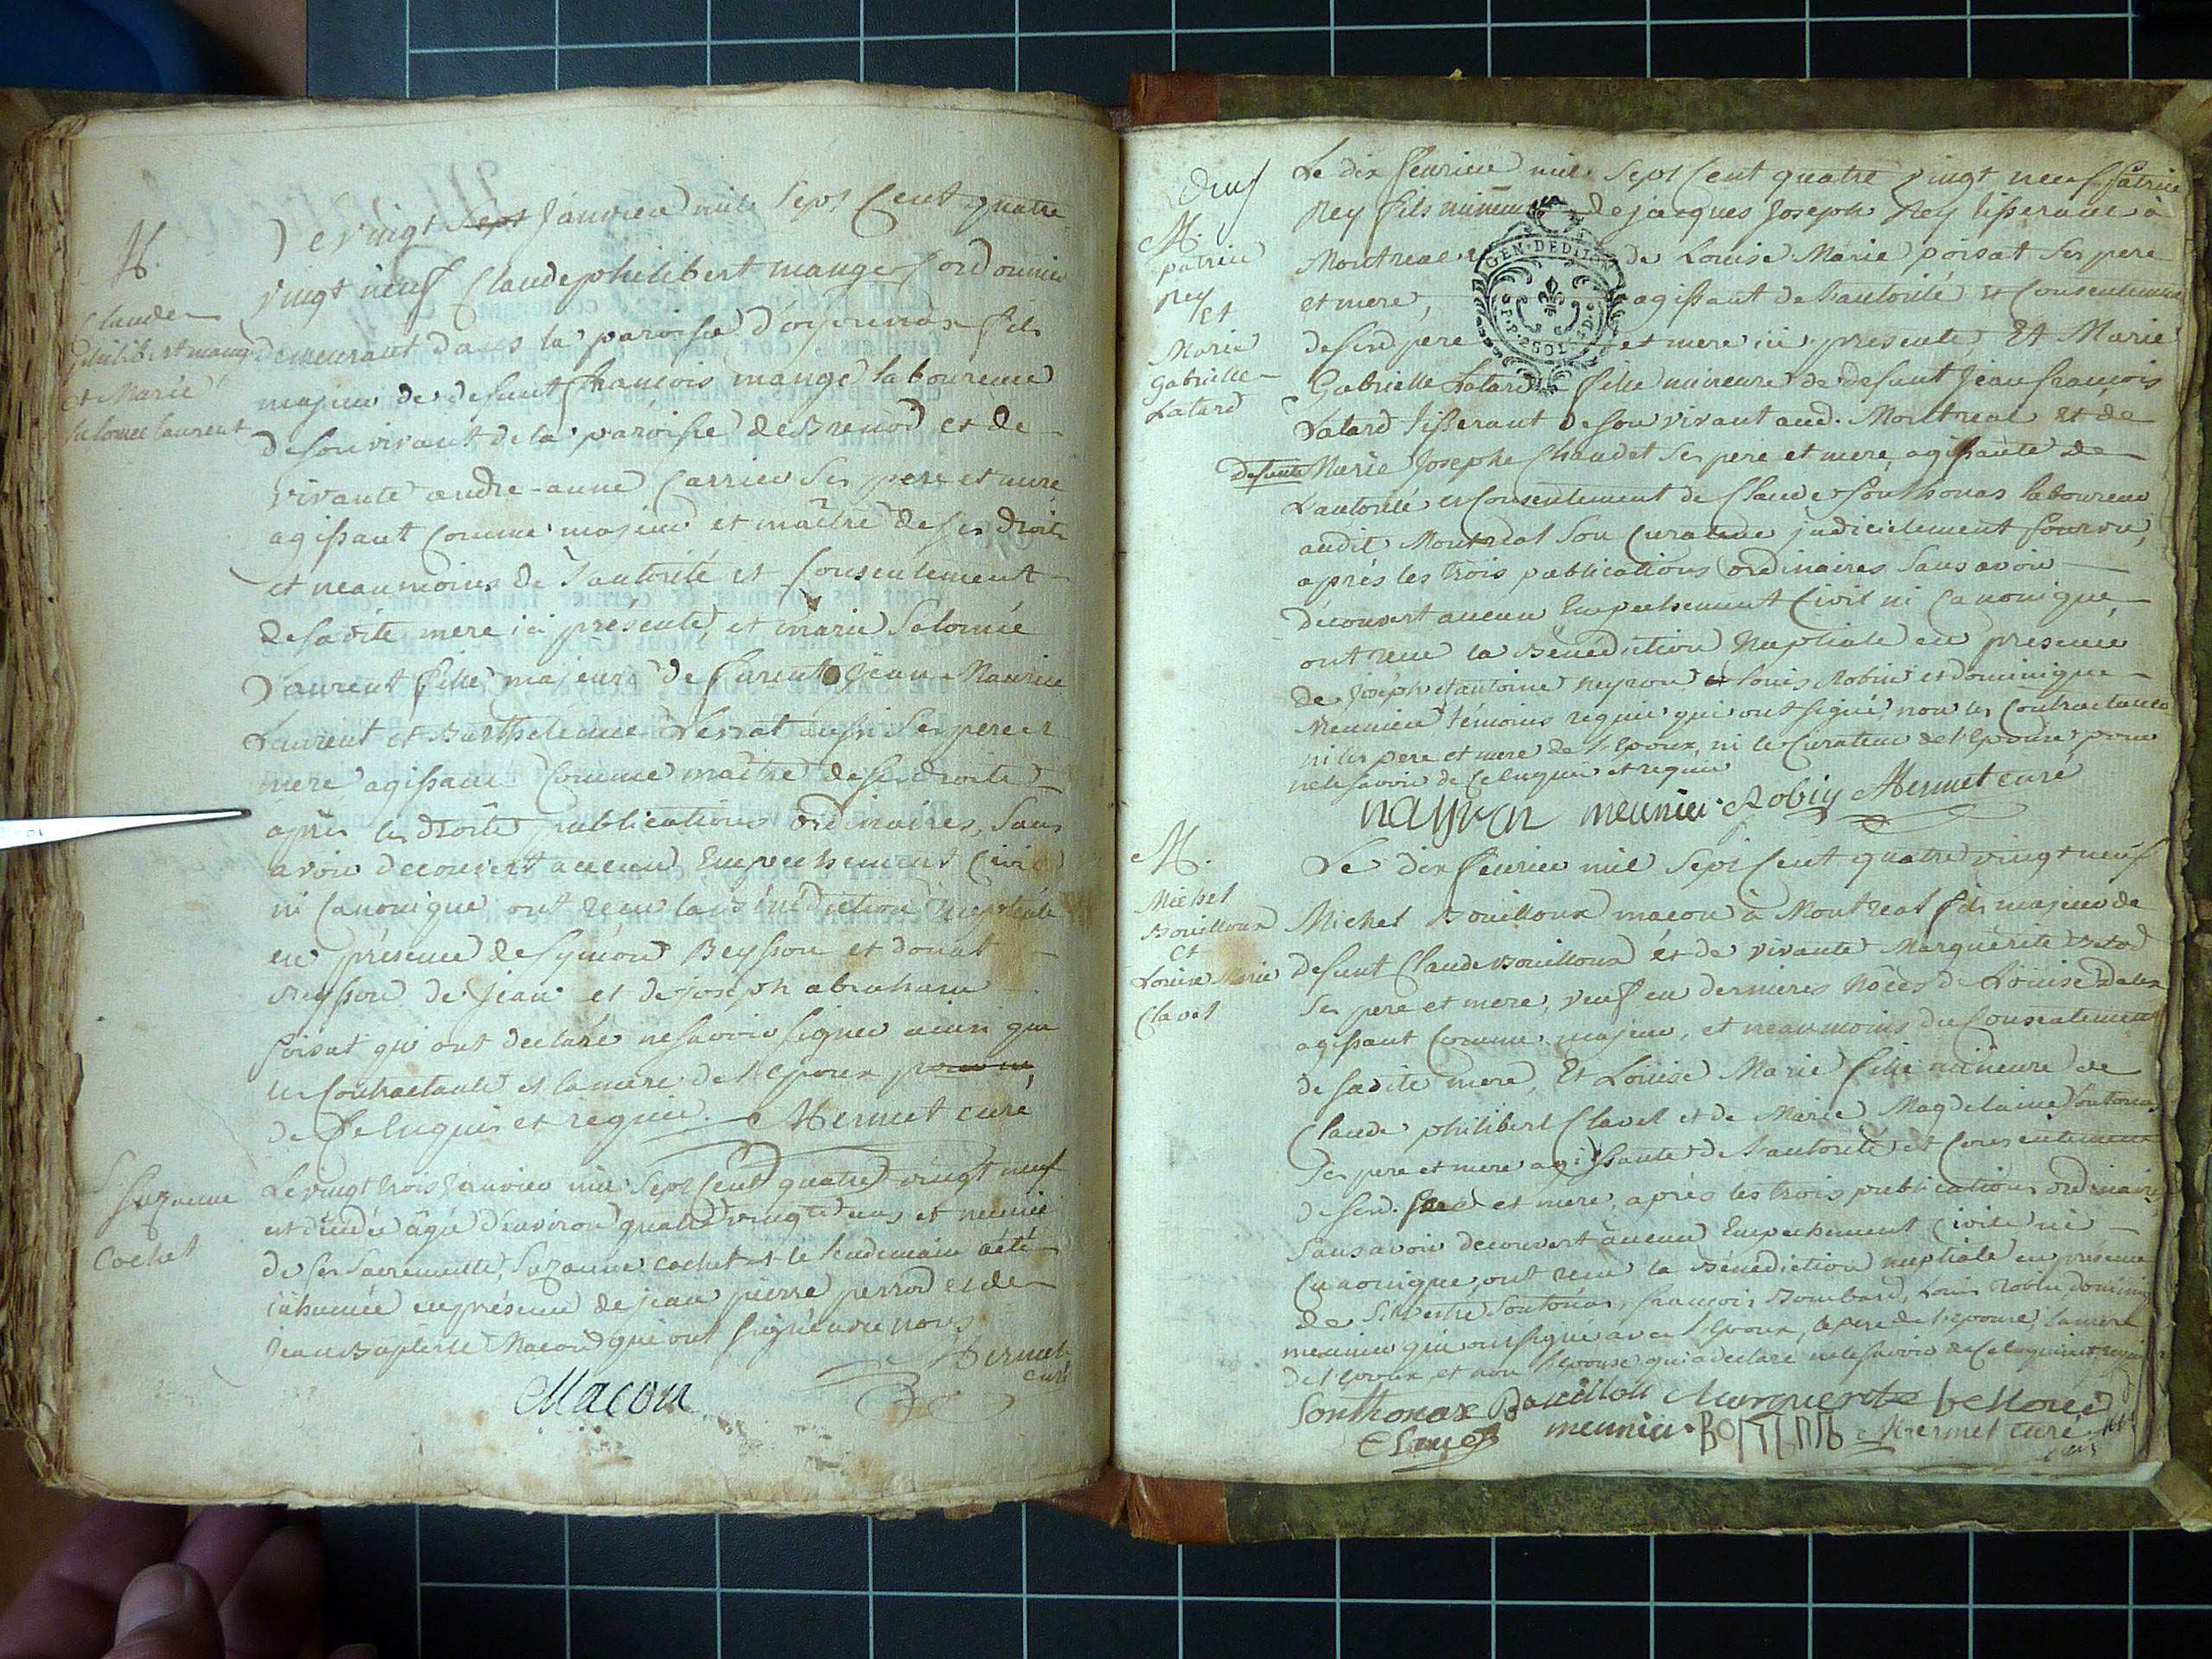 M.
Claude
philibert mange
et Marie
salomee laurent
Le vingt sept janvier mil sept cent quatre
vingt neuf Claude philibert mange cordonnier
demeurant dans la paroisse d'oyonnax fils
majeur de defunt françois mange laboureur
de son vivant de la paroisse de Brenod et de
vivante andre-anne Carrier ses pere et mere
agissant comme majeur et maître de ses droits
et neanmoins de l'autorité et consentement
de sa dite mere ici présente, et marie Salomée
Laurent fille majeure de Jean Maurice
Laurent et Barthelemie aussi ses pere et
mere agissant comme maître de ses droits
après les droits publications ordinaires, sans
avoir decouvert aucun Empechement Civil
ni Canonique ont reçu la Bénédiction nuptiale
en présence de symon Beysson et donat
Beysson de jean et de joseph abraham
poisat qui ont declaré ne savoir signer ainsi que
les Contractants et la mere de l'epoux
de ce Enquis et requis. Hermet curé
S.
Suzanne
Cochet
Le vingt trois janvier mil sept cent quatre vingt neuf
est decedée âgée d'environ quatre vingts ans et munie
de ses sacrements, Suzanne cochet et le lendemain a été
inhumée en présence de jean pierre perrod et de
jean Baptiste Macon qui ont signé avec nous
Hermet
curé
Macon
deux
M.
patrice
Rey
et
Marie
Gabrielle
Latard
Le dix fevrier mil sept cent quatre vingt neuf patrice
Rey fils mineur de jacques joseph Rey tisserand à
Montreal et de Louise Marie poisat ses pere
et mere, agissant de l'autorité et Consentement
de ses d pere et mere ici presents Et Marie
Gabrielle Latard fille mineure de defunt jean françois
Latard tisserant de son vivant aud. Montreal et de
defunte Marie Josephe Chaudet ses pere et mere, agissante de
L'autorité et Consentement de Claude Sonthonas laboureur
audit Montreal son curateur judicielement pourvu,
après les trois publications ordinaires sans avoir
découvert aucun Empechement Civil ni Canonique
ont reçu la Bénédiction Nuptiale en presence
de joseph et antoine neyron et louis Robin et dominique
Meunier témoins requis qui ont signé, non les Contractants
ni les pere et mere de l'Epoux, ni le Curateur de l'Epouse pour
ne le savoir de ce enquis et requis
nayron meunier Robin Hermet curé
GEN · DEDIJON
2 SOLS
M.
Michel
Bouilloux
et
Louise Marie
Clavet
Le dix fevrier mil sept cent quatre vingt neuf
Michel Bouilloux maçon à Montreal fils majeur de
defunt Claude Bouilloux et de vivante Marguerite
ses pere et mere, veuf en dernieres Nôces de Louise
agissant comme majeur, et neanmoins du Consentement
de sa dite mere, Et Louise Marie fille mineure de
Claude philibert Clavet et de Marie Magdelaine Sontonas
ses pere et mere agissante de l'autorité et Consentement
de ses d. pere et mere, après les trois publications ordinaires
sans avoir decouvert aucun Empechement Civile ni
Canonique, ont reçu la Bénédiction nuptiale en présence
de Silvestre Sontonas, françois Bombard, Louis Robin dominique
meunier qui ont signé avec l'Epoux, le pere de l'epouse, la mere
de l'epoux, et non l'epouse qui a declaré ne le savoir de ce enquis et requis
Sonthonax Bouilloux Marguerite
Clavet meunier Hermet curé